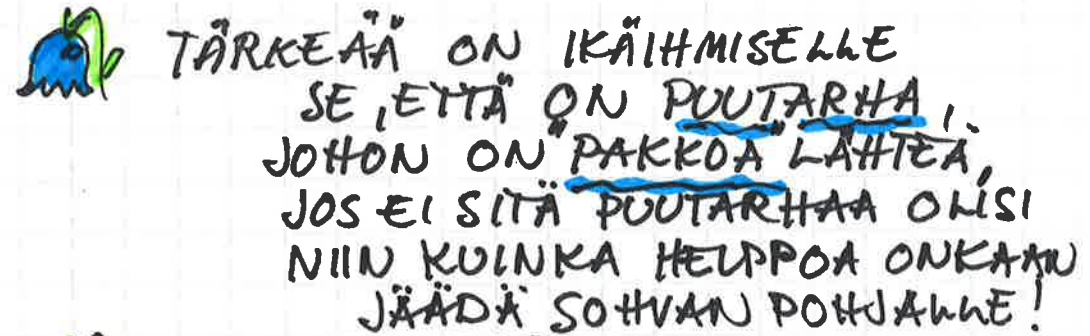 TÄRKEÄÄ ON IKÄIHMISELLE
SE, ETTÄ ON PUUTARHA,
JOHON ON "PAKKOA" LÄHTEÄ,
JOS EI SITÄ PUUTARHAA OLISI
NIIN KUINKA HELPPOA ONKAAN
JÄÄDÄ SOHVAN POHJALLE!